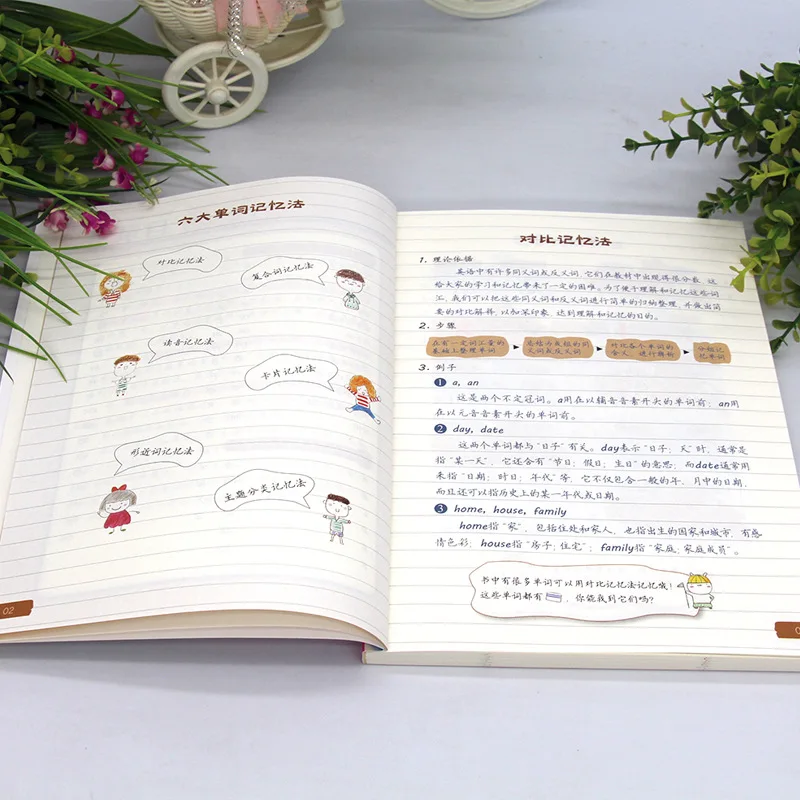 六大单词记忆法
对比记忆法
复合词记忆法
读音记忆法
卡片记忆法
形近词记忆法
主题分类记忆法
02
对比记忆法
1. 理论依据
英语中有许多同义词或反义词,它们在教材中出现得很分散,这
给大家的学习和记忆带来了一定的困难。为了便于理解和记忆这些词
汇,我们可以把这些同义词和反义词进行简单的归纳整理,并做出简
要的对比解释,以加深印象,达到理解和记忆的目的。
2. 步骤
在有一定词汇量的
基础上整理单词
总结归类组的同
义词或反义词
对比各个单词的
含义,进行解析
分组记
忆单词
3. 例子
1 a, an
这是两个不定冠词。a用在以辅音音素开头的单词前;an用
在以元音音素开头的单词前。
2 day, date
这两个单词都与“日子”有关。day表示“日子;天”时,通常是
指“某一天”,它还含有“节日;假日;生日”的意思;而date通常用
来指“日期;时日;年代”等,它不仅包含一般的年、月中的日期,
而且还可以指历史上的某一年代或日期。
3 home, house, family
home指“家”,包括住处和家人,也指出生的国家和城市,有感
情色彩;house指“房子;住宅”;family指“家庭;家庭成员”。
书中有很多单词可以用对比记忆法记忆哦!
这些单词都有 ,你能找到它们吗?